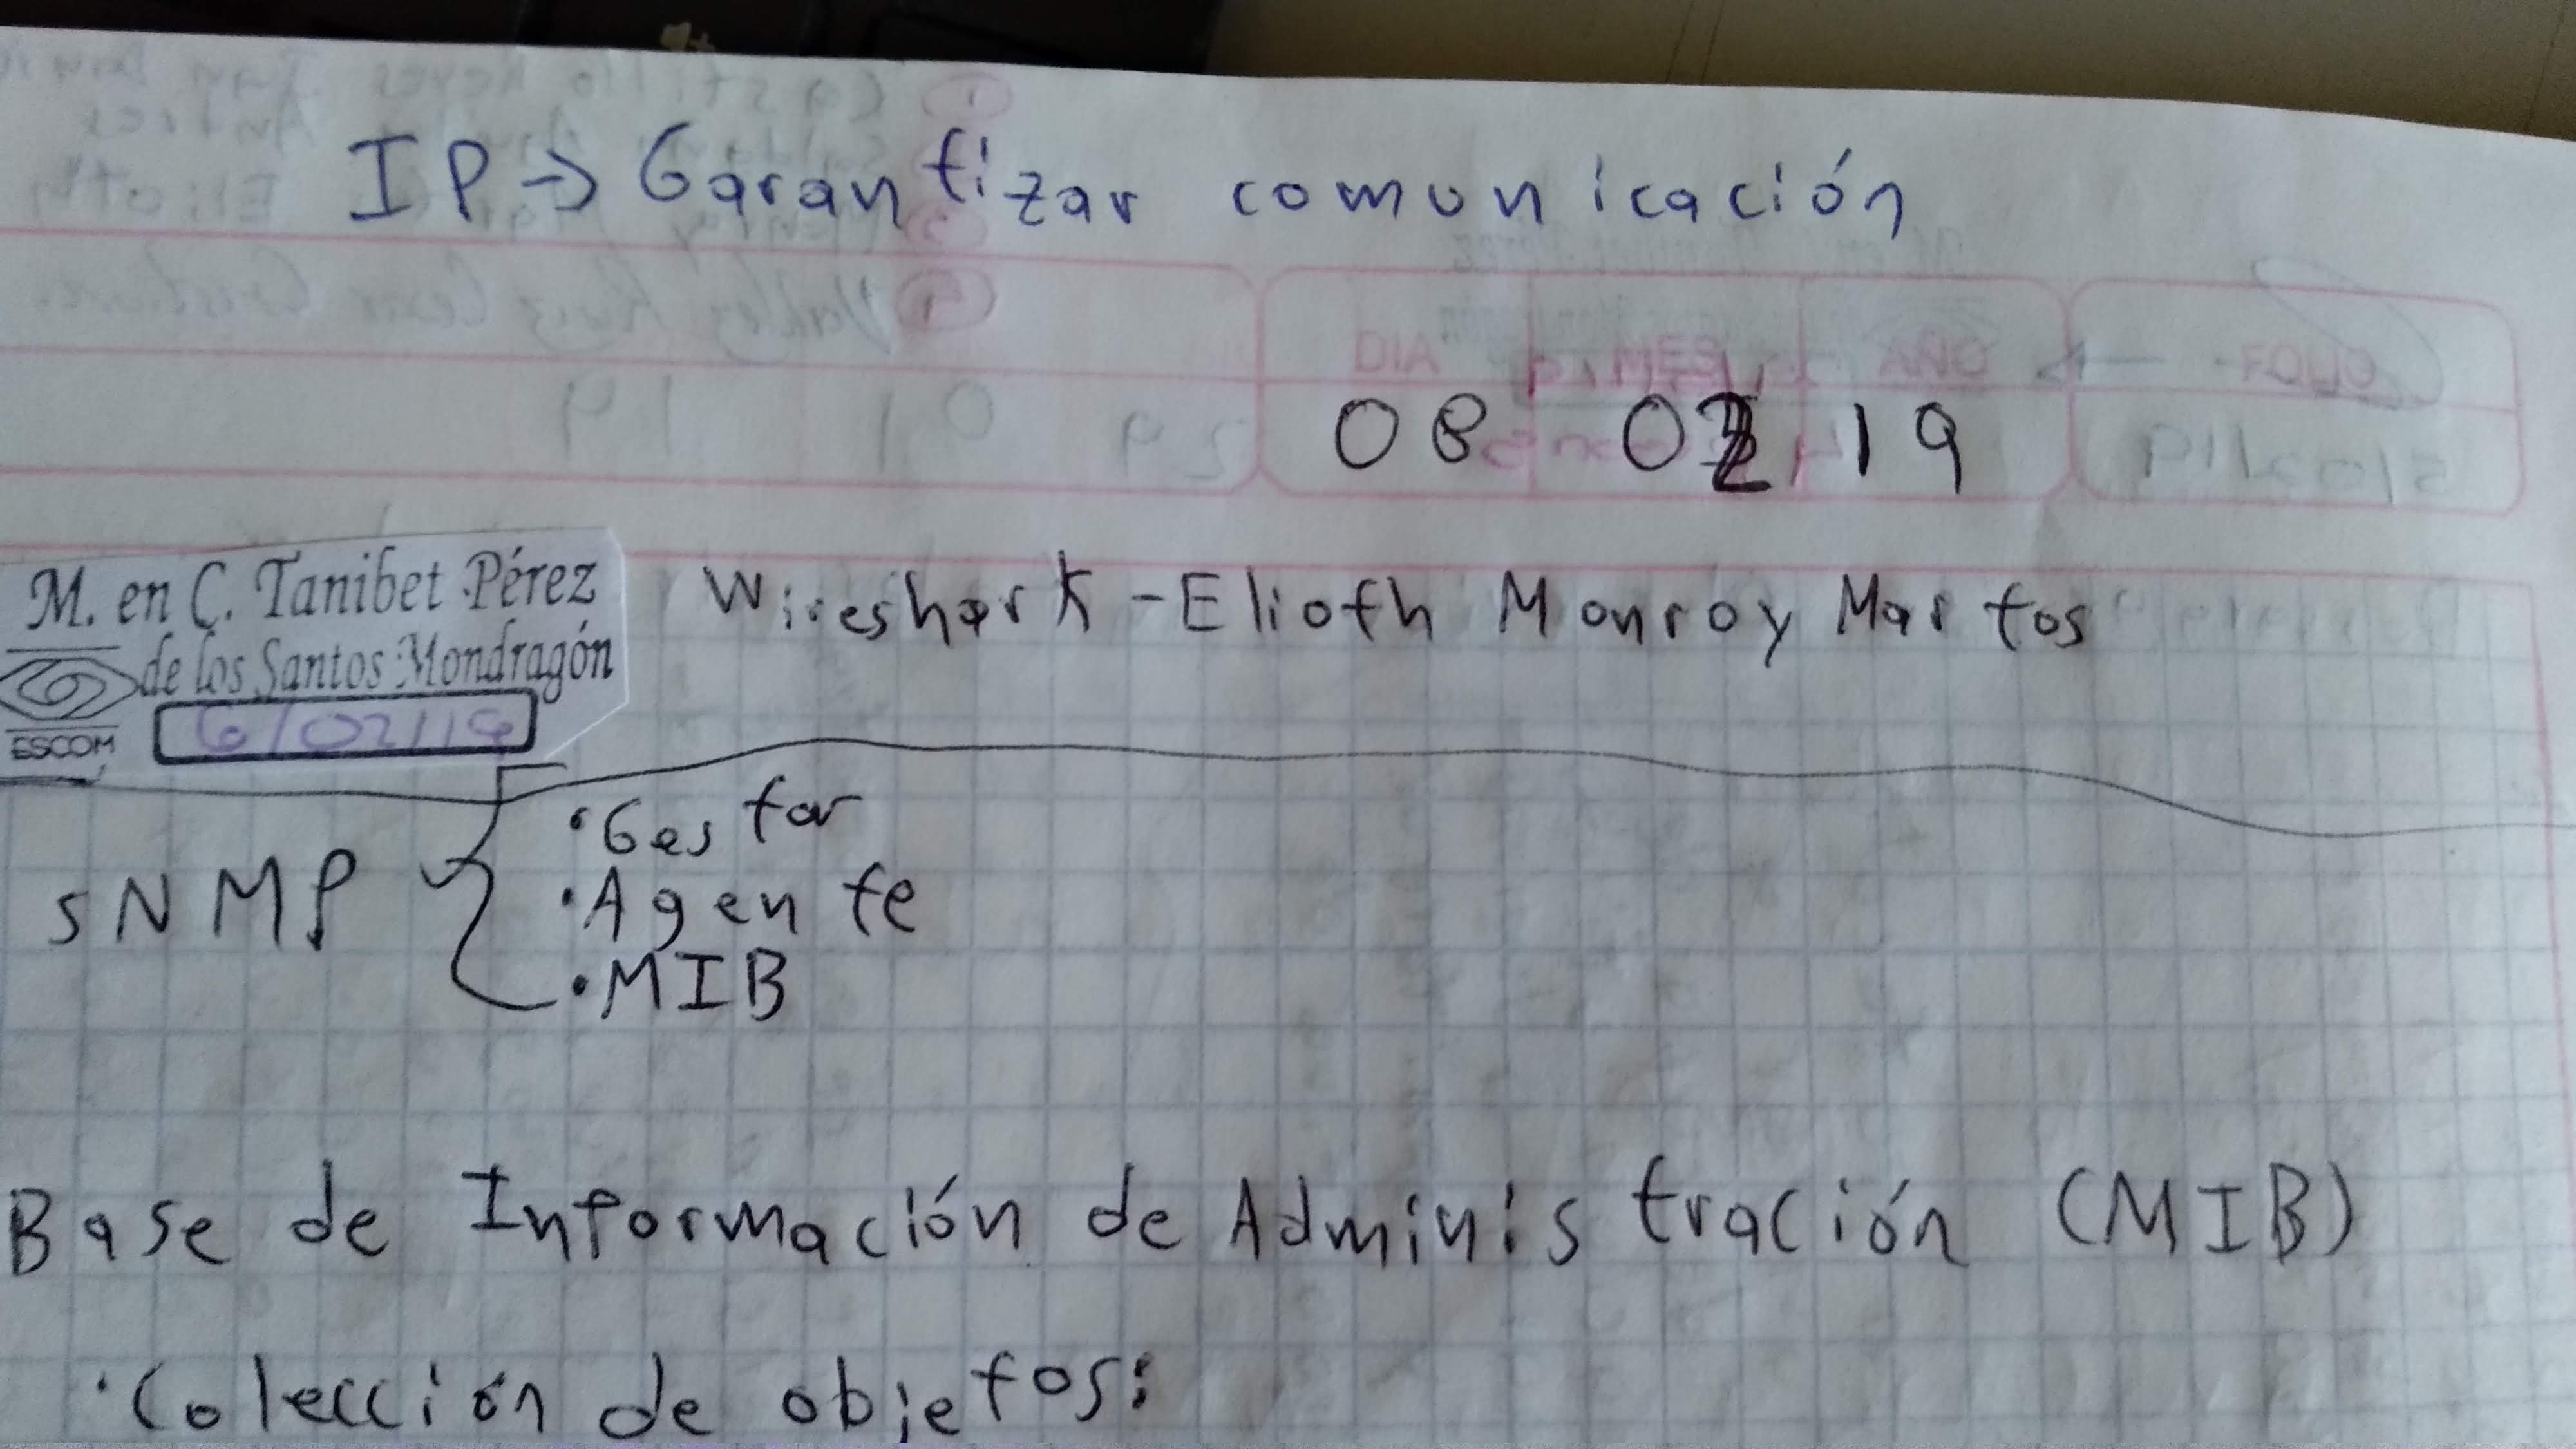 IP → Garantizar comunicación
DIA MES AÑO FOLIO
08 02 19
M. en C. Tanibet Pérez
de los Santos Mondragón
ESCOM 6/02/19
Wireshark - Elioth Monroy Martos
SNMP
• Gestor
• Agente
• MIB
Base de Información de Administración (MIB)
• Colección de objetos: